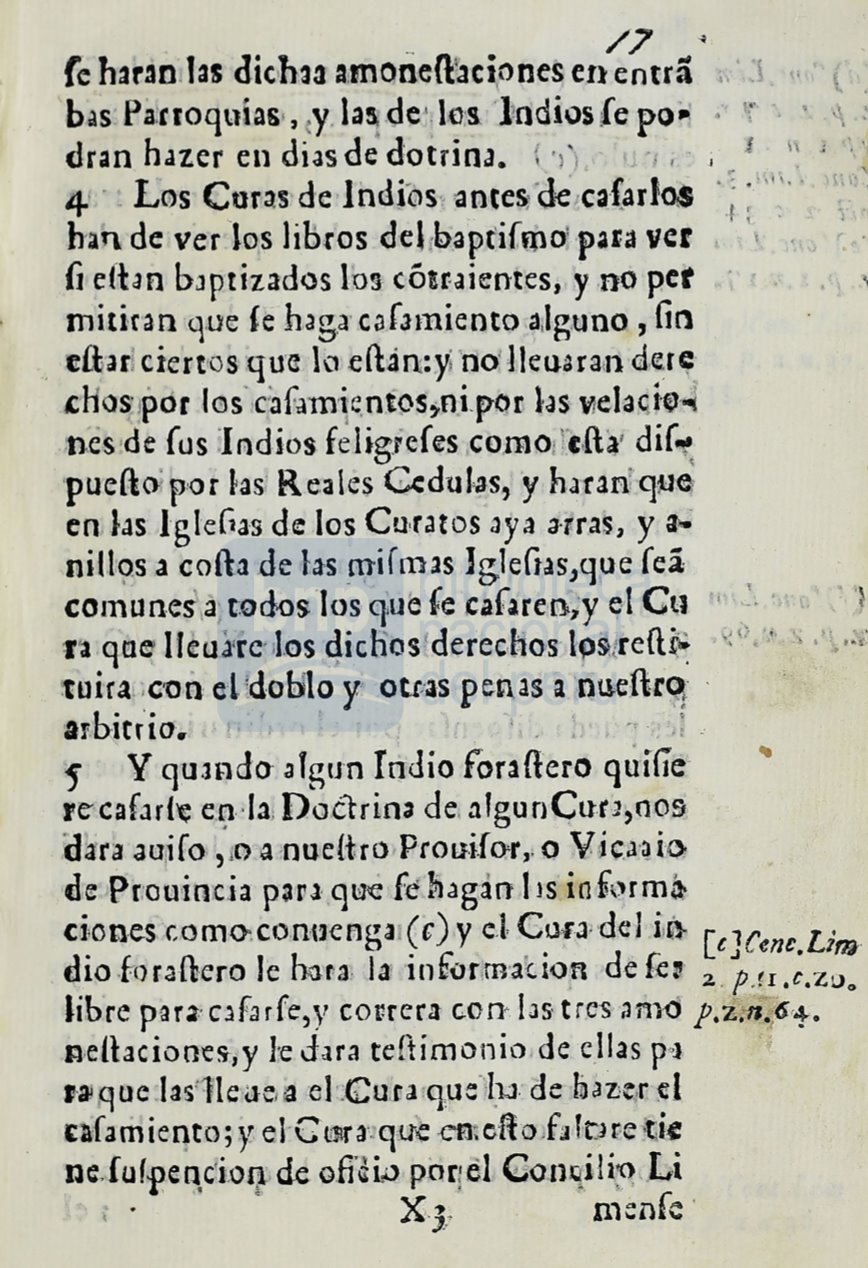 17
ſe haran las dichaa amoneſtaciones en entrã
bas Parroquias, y las de los Indios ſe po-
dran hazer en dias de dotrina.
4 Los Curas de Indios antes de caſarlos
han de ver los libros del baptiſmo para ver
ſi eſtan baptizados los cõtraientes, y no per
mitiran que ſe haga caſamiento alguno, ſin
eſtar ciertos que lo eſtan: y no lleuaran dere
chos por los caſamientos, ni por las velacio-
nes de ſus Indios feligreſes como eſta diſ-
pueſto por las Reales Cedulas, y haran que
en las Igleſias de los Curatos aya arras, y a-
nillos a coſta de las miſmas Igleſias, que ſeã
comunes a todos los que ſe caſaren, y el Cu
ra que lleuare los dichos derechos los reſti-
tuira con el doblo y otras penas a nueſtro
arbitrio.
5 Y quando algun Indio foraſtero quiſie
re caſarſe en la Doctrina de algun Cura, nos
dara auiſo, o a nueſtro Prouiſor, o Vicaaio
de Prouincia para que ſe hagan las informa
ciones como conuenga (c) y el Cura del in
dio foraſtero le hara la informacion de ſer
libre para caſarſe, y correra con las tres amo
neſtaciones, y le dara teſtimonio de ellas pa
ra que las lleue a el Cura que ha de hazer el
caſamiento; y el Cura que en eſto faltare tie
ne ſuſpencion de oficio por el Concilio Li
X3 menſe
[c] Conc. Lim
2 p. 11. c. 20.
p. 2. n. 64.